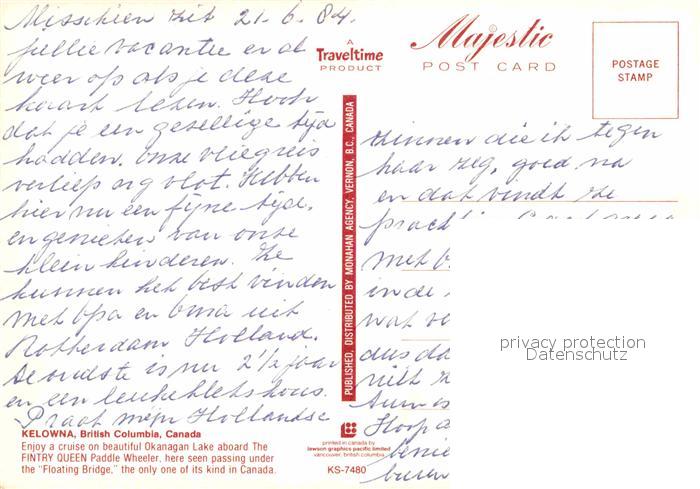 Misschien zit 21.6.84.
jullie vacantie er al
weer op als je deze
kaart lezen. Hoop
dat je een gezellige tijd
hadden. Onze vliegreis
verliep erg vlot. Hebben
hier nu een fijne tijd,
en genieten van onze
kleinkinderen. Ze
kunnen het best vinden
met opa en oma uit
Rotterdam Holland.
De oudste is nu 2½ jaar
en een
Praat mijn Hollandse
KELOWNA, British Columbia, Canada
Enjoy a cruise on beautiful Okanagan Lake aboard The
FINTRY QUEEN Paddle Wheeler, here seen passing under
the "Floating Bridge," the only one of its kind in Canada.
A
Traveltime
PRODUCT
PUBLISHED, DISTRIBUTED BY MONAHAN AGENCY, VERNON, B.C., CANADA
printed in canada by
lawson graphics pacific limited
vancouver, british columbia
KS-7480
Majestic
POST CARD
POSTAGE
STAMP
zinnen die ik tegen
haar zeg, goed na
en dat vindt ze
met
in de
wat
dus
niet
Hoop
buren
privacy protection
Datenschutz